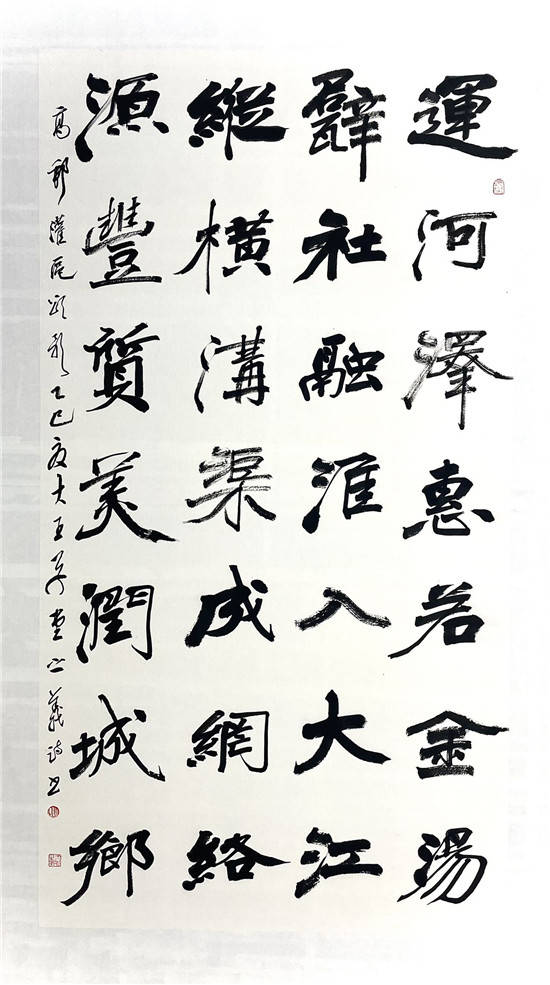 運河澤惠若金湯
甓社融淮入大江
縱橫溝渠成網絡
源豐質美潤城鄉
高郵灌區頌 乙巳夏 大 義 詩書